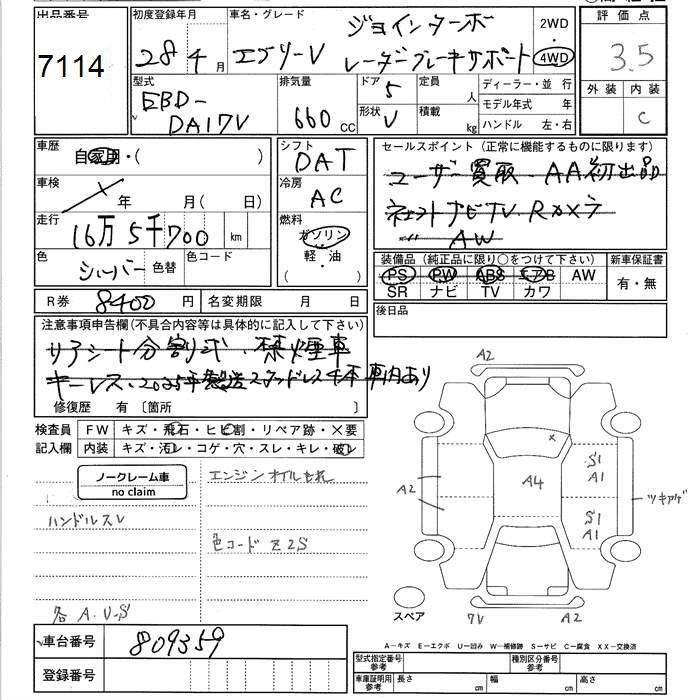 出品番号
7114
初度登録年月
28年4月
車名・グレード
ジョインターボ
エブリーV レーダーブレーキサポート
2WD
4WD
評価点
3.5
外装 内装
C
型式
EBD-
DA17V
排気量
660 cc
ドア 5
形状 V
定員 人
積載 kg
ディーラー・並行
モデル年式 年
ハンドル 左・右
車歴
自家用・( )
車検
年 月(日)
走行
16万5千700 km
色
シルバー
色替
色コード
R券 8400円
名変期限 月 日
シフト
DAT
冷房
AC
燃料
ガソリン
軽油
( )
セールスポイント(正常に機能するものに限ります)
ユーザー買取 AA初出品
ナビTV Rカメラ
AW
装備品(純正品に限り○をつけて下さい)
PS PW ABS エアB AW
SR ナビ TV カワ
新車保証書
有・無
後日品
注意事項申告欄(不具合内容等は具体的に記入して下さい)
リアシート分割式・禁煙車
キーレス・2025年製造スタッドレス4本車内あり
修復歴 有〔箇所 〕
検査員
記入欄
FW キズ・飛石・ヒビ割・リペア跡・×要
内装 キズ・汚レ・コゲ・穴・スレ・キレ・破レ
ノークレーム車
no claim
エンジンオイルもれ
ハンドルスレ
色コード Z2S
各A.U.S
A2
A2
A4
S1
A1
S1
A1
ツキアゲ
スペア
7V
A2
車台番号 809359
登録番号
A-キズ E-エクボ U-凹み W-補修跡 S-サビ C-腐食 XX-交換済
型式指定番号
参考
種別区分番号
参考
車庫証明用
参考
長さ cm 幅 cm 高さ cm